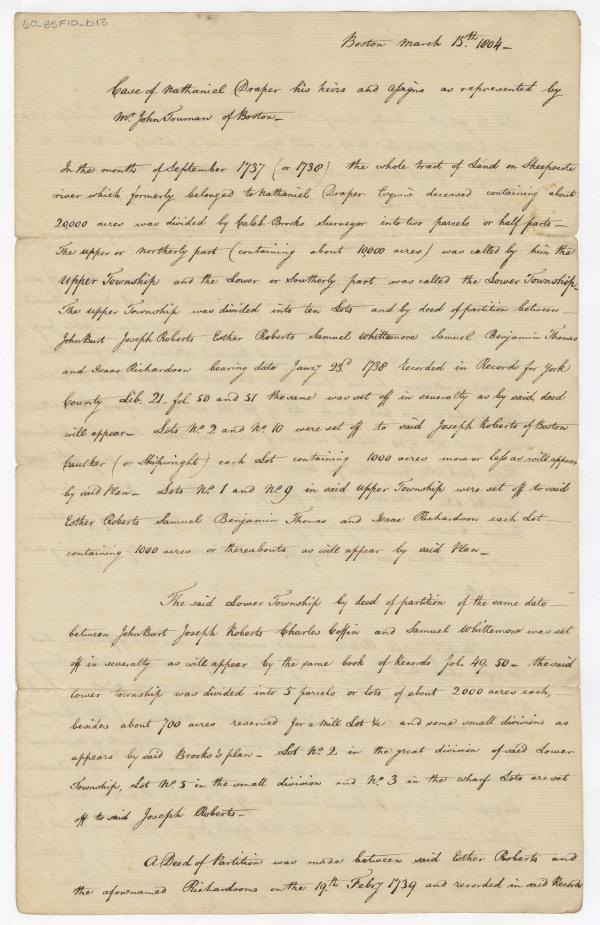 60-BSF10-D13
Boston March 15th 1804—
Case of Nathaniel Draper his heirs and assigns as represented by
Mr John Truman of Boston—
In the month of September 1737 (or 1738) the whole tract of Land on Sheepscote
river which formerly belonged to Nathaniel Draper Esquire deceased containing about
20,000 acres was divided by Caleb Brooks Surveyor into two parcels or half parts—
The upper or Northerly part (containing about 10,000 acres) was called by him the
Upper Township and the Lower or Southerly part was called the Lower Township—
The upper Township was divided into ten Lots and by deed of partition between
John Burt Joseph Roberts Esther Roberts Samuel Whittemore Samuel Benjamin Thomas
and Isaac Richardson bearing date Janry 23d 1738 Recorded in Records for York
County Lib. 21 - fol. 50 and 51 the same was set off in severalty as by said deed
will appear— Lots No. 2 and No. 10 were set off to said Joseph Roberts of Boston
Caulker (or Shipwright) each Lot containing 1000 acres more or less as will appear
by said Plan— Lots No. 1 and No. 9 in said upper Township were set off to said
Esther Roberts Samuel Benjamin Thomas and Isaac Richardson each Lot
containing 1000 acres or thereabouts as will appear by said Plan—
The said Lower Township by deed of partition of the same date
between John Burt Joseph Roberts Charles Coffin and Samuel Whittemore was set
off in severalty as will appear by the same book of Records fol. 49. 50— the said
lower township was divided into 5 parcels or lots of about 2000 acres each,
besides about 700 acres reserved for a Mill Lot &c and some small divisions as
appears by said Brooks's plan— Lot No. 2 in the great division of said Lower
Township, Lot No. 5 in the small division and No. 3 in the wharf Lots are set
off to said Joseph Roberts—
A Deed of Partition was made between said Esther Roberts and
the aforenamed Richardsons on the 19th Febry 1739 and recorded in said Records